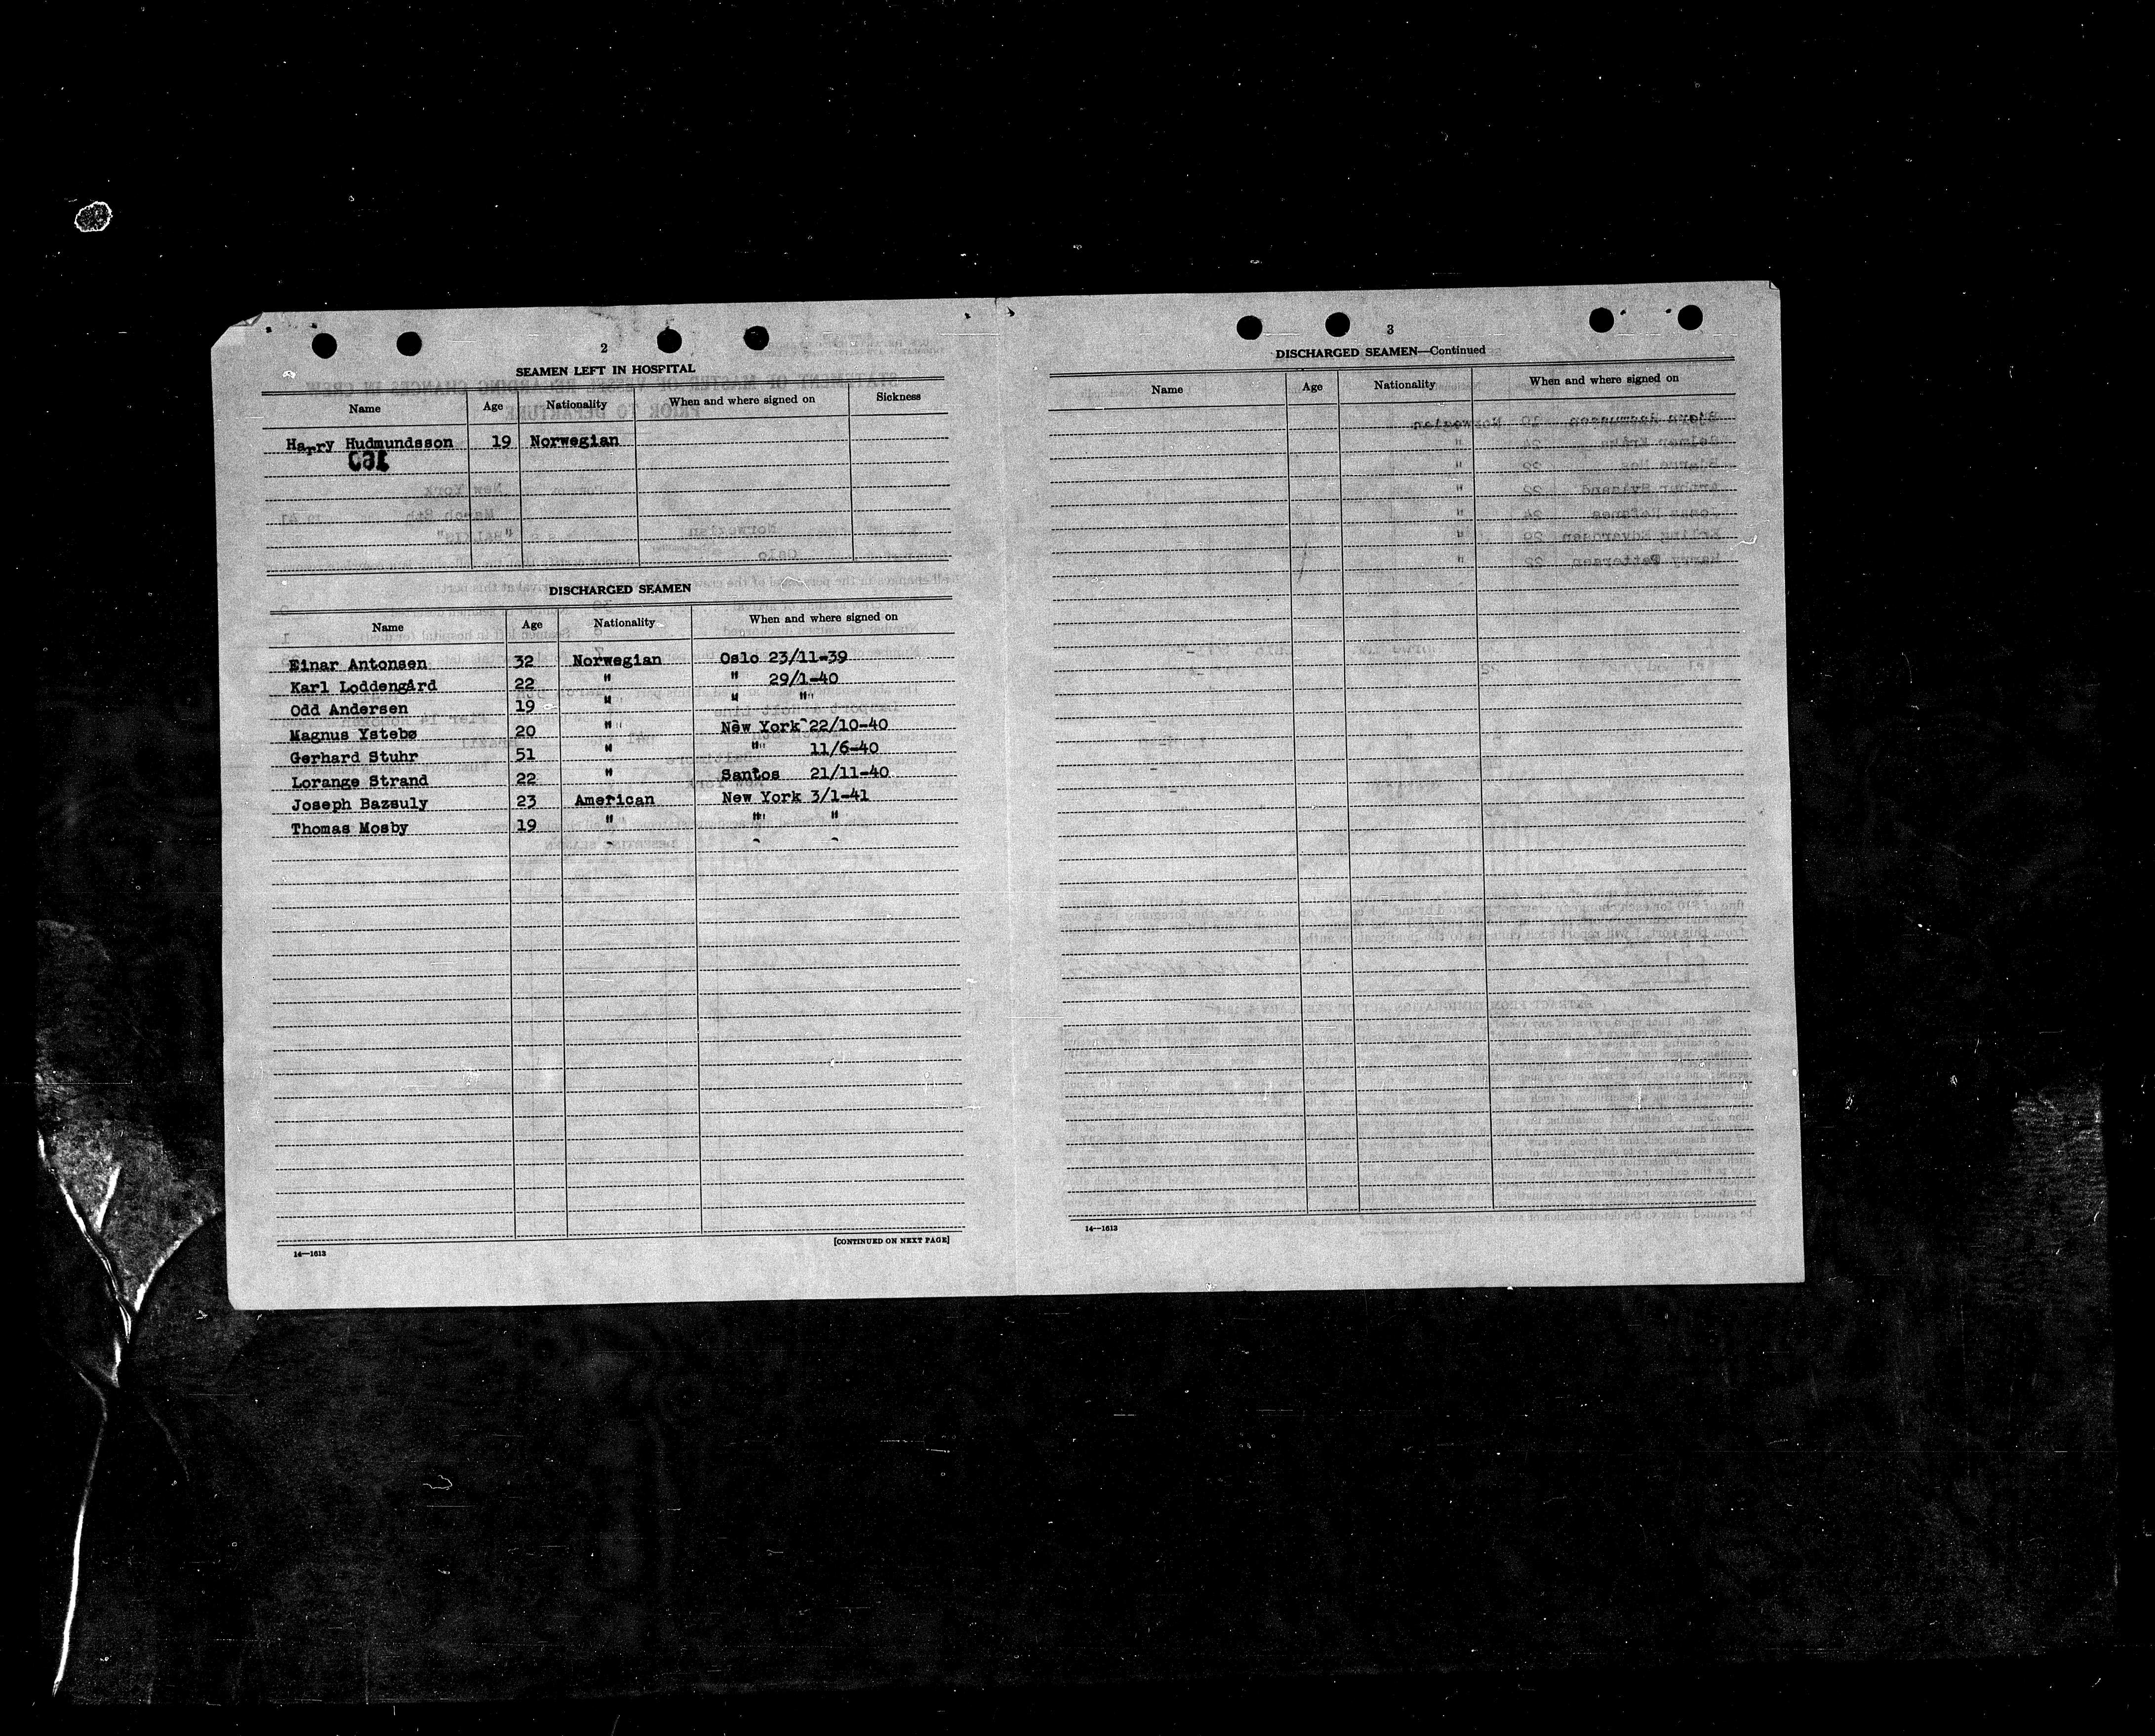 2
SEAMEN LEFT IN HOSPITAL
Name Age Nationality When and where signed on Sickness
Harry Hudmundsson 19 Norwegian
DISCHARGED SEAMEN
Name Age Nationality When and where signed on
Einar Antonsen 32 Norwegian Oslo 23/11-39
Karl Loddengård 22 " " 29/1-40
Odd Andersen 19 " " "
Magnus Ystebø 20 " New York 22/10-40
Gerhard Stuhr 51 " " 11/6-40
Lorange Strand 22 " Santos 21/11-40
Joseph Bazsuly 23 American New York 3/1-41
Thomas Mosby 19 " " "
[CONTINUED ON NEXT PAGE]
14—1613
3
DISCHARGED SEAMEN—Continued
Name Age Nationality When and where signed on
14—1613